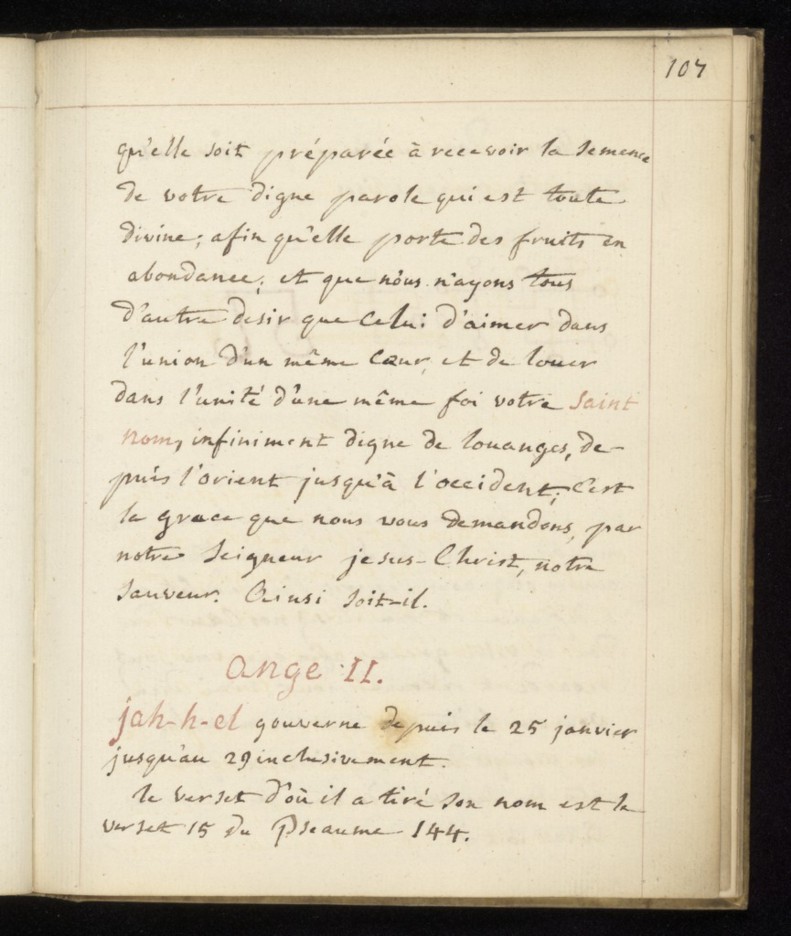 107
qu'elle soit préparée à recevoir la semence
de votre digne parole qui est toute
divine; afin qu'elle porte des fruits en
abondance; et que nous n'ayons tous
d'autre desir que celui d'aimer dans
l'union d'un même cœur, et de louer
dans l'unité d'une même foi votre saint
nom, infiniment digne de louanges, de-
puis l'orient jusqu'à l'occident; c'est
la grace que nous vous demandons, par
notre seigneur jesus-Christ, notre
sauveur. Ainsi soit-il.
Ange II.
jah-h-el gouverne depuis le 25 janvier
jusqu'au 29 inclusivement.
le verset d'où il a tiré son nom est le
verset 15 du Pseaume 144.